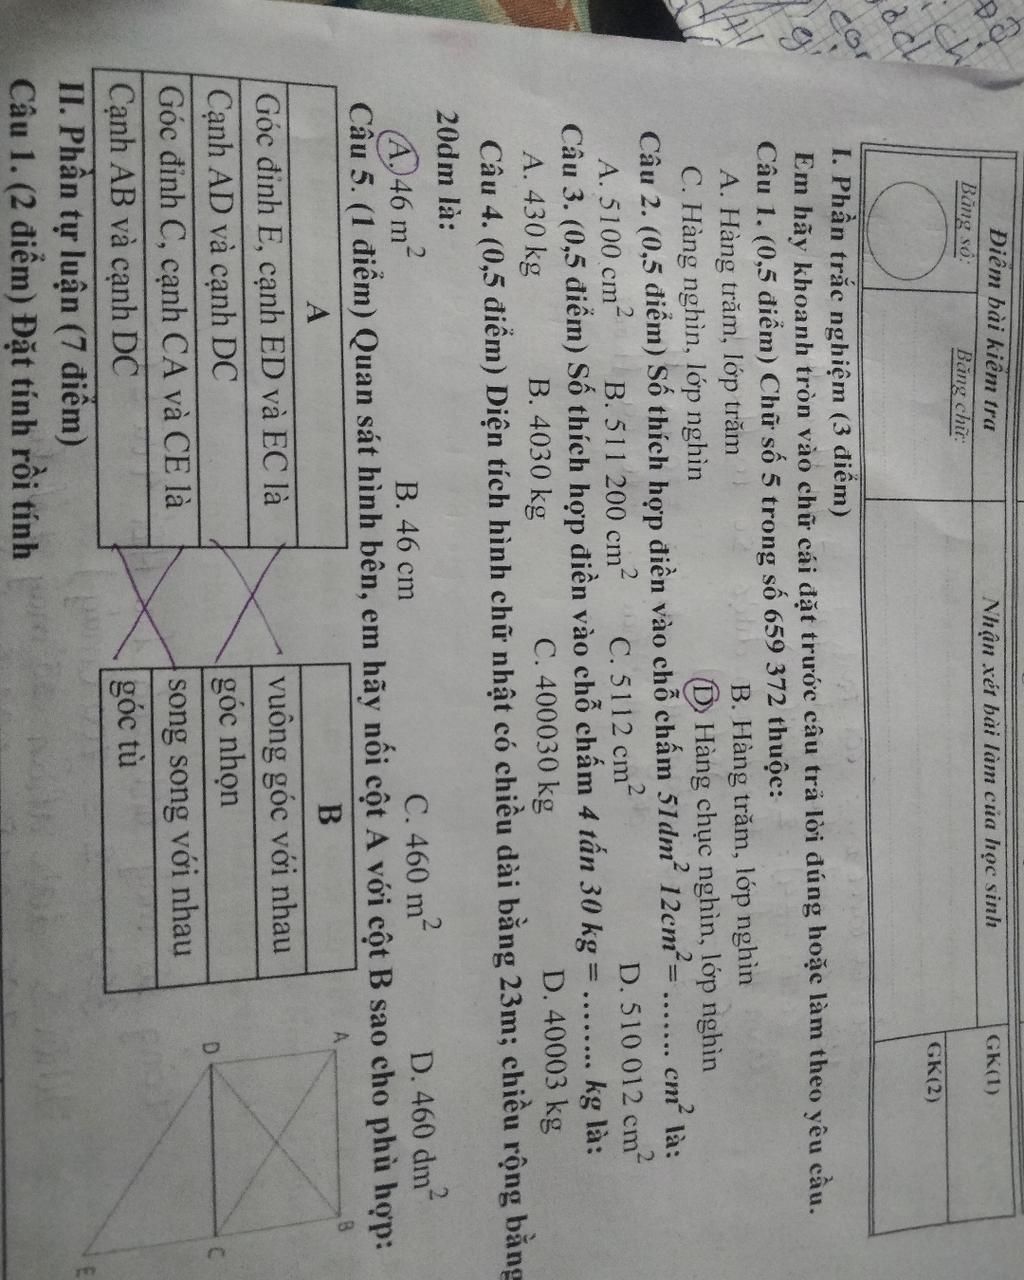 Điểm bài kiểm tra
Nhận xét bài làm của học sinh
GK(1)
Bằng số:
Bằng chữ:
GK(2)
I. Phần trắc nghiệm (3 điểm)
Em hãy khoanh tròn vào chữ cái đặt trước câu trả lời đúng hoặc làm theo yêu cầu.
Câu 1. (0,5 điểm) Chữ số 5 trong số 659 372 thuộc:
A. Hàng trăm, lớp trăm B. Hàng trăm, lớp nghìn
C. Hàng nghìn, lớp nghìn D. Hàng chục nghìn, lớp nghìn
Câu 2. (0,5 điểm) Số thích hợp điền vào chỗ chấm 51dm² 12cm² = ....... cm² là:
A. 5100 cm² B. 511 200 cm² C. 5112 cm² D. 510 012 cm²
Câu 3. (0,5 điểm) Số thích hợp điền vào chỗ chấm 4 tấn 30 kg = ........ kg là:
A. 430 kg B. 4030 kg C. 400030 kg D. 40003 kg
Câu 4. (0,5 điểm) Diện tích hình chữ nhật có chiều dài bằng 23m; chiều rộng bằng
20dm là:
A. 46 m² B. 46 cm C. 460 m² D. 460 dm²
Câu 5. (1 điểm) Quan sát hình bên, em hãy nối cột A với cột B sao cho phù hợp:
A B
Góc đỉnh E, cạnh ED và EC là vuông góc với nhau
Cạnh AD và cạnh DC góc nhọn
Góc đỉnh C, cạnh CA và CE là song song với nhau
Cạnh AB và cạnh DC góc tù
A B
D C
E
II. Phần tự luận (7 điểm)
Câu 1. (2 điểm) Đặt tính rồi tính